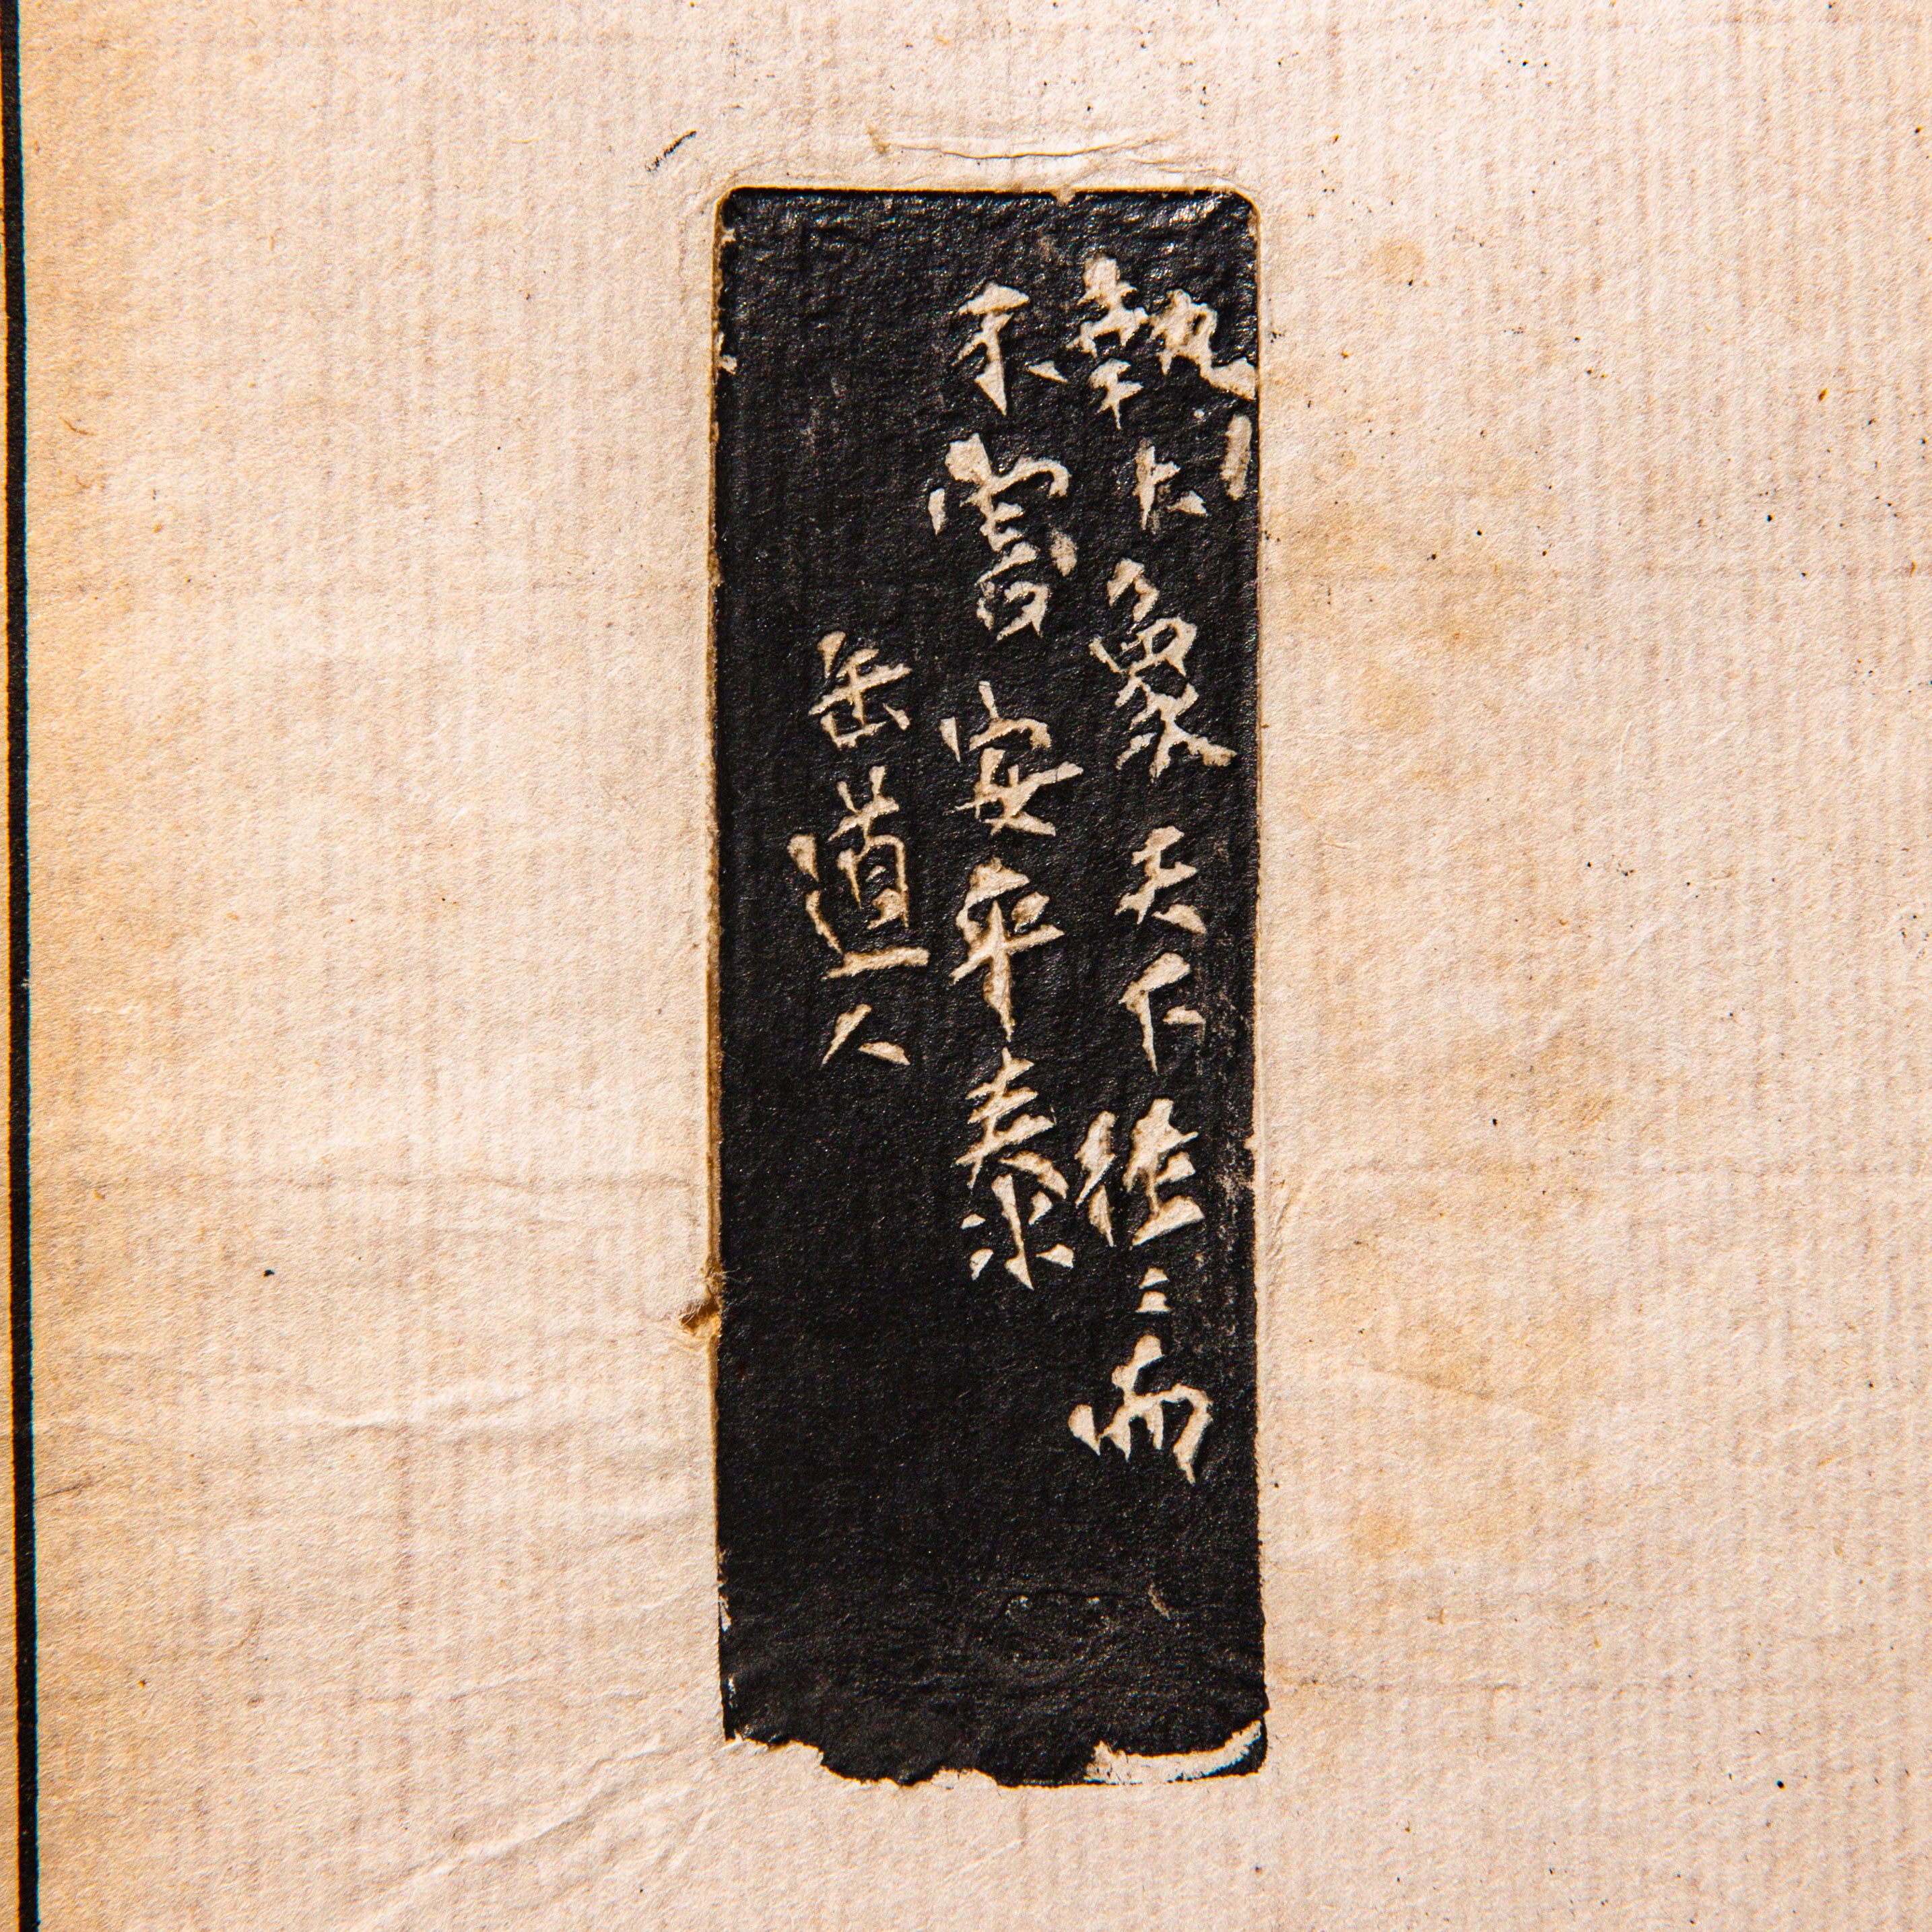 執大象天下往〻而
不害安平泰
缶道人